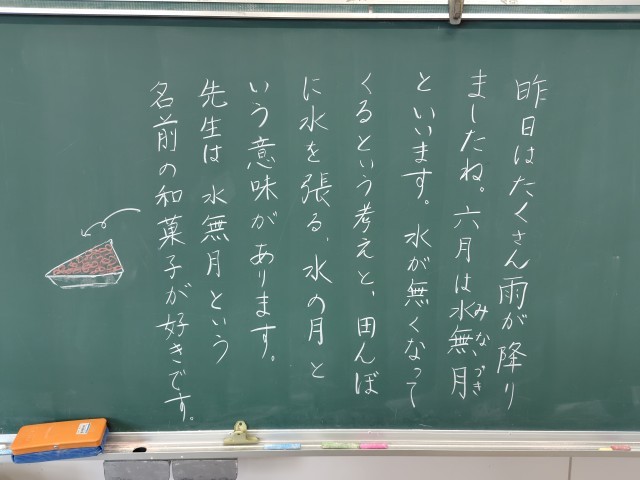 昨日はたくさん雨が降り
ましたね。六月は水無月
みなづき
といいます。水が無くなって
くるという考えと、田んぼ
に水を張る、水の月と
いう意味があります。
先生は水無月という
名前の和菓子が好きです。